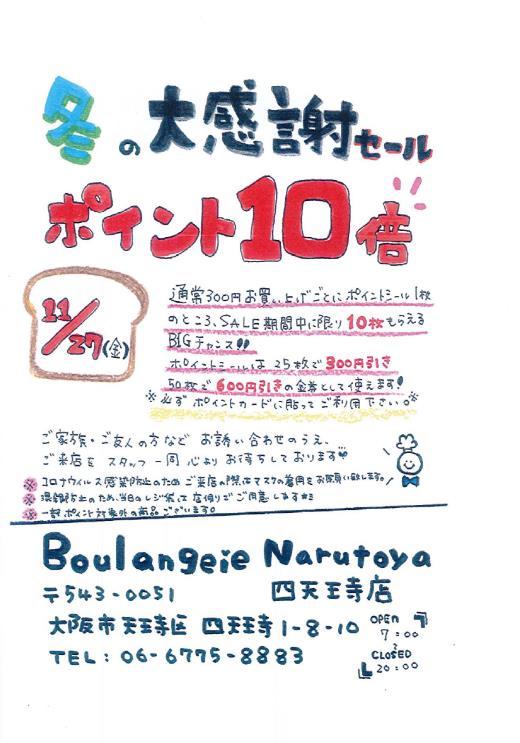 冬の大感謝セール
ポイント10倍
11/27(金)
通常300円お買い上げごとにポイントシール1枚
のところ、SALE期間中に限り10枚もらえる
BIGチャンス!!
ポイントシールは25枚で300円引き
50枚で600円引きの金券として使えます!
※必ずポイントカードに貼ってご利用下さい。※
ご家族・ご友人の方など お誘い合わせのうえ、
ご来店を スタッフ一同 心よりお待ちしております
※コロナウイルス感染防止のため ご来店の際はマスクの着用をお願い致します。
※混雑防止のため、当日のレジ袋は 店側でご用意します
※一部ポイント対象外の商品ございます。
Boulangeie Narutoya
〒543-0051 四天王寺店
大阪市天王寺区 四天王寺1-8-10
TEL: 06-6775-8883
OPEN
7:00
CLOSED
20:00